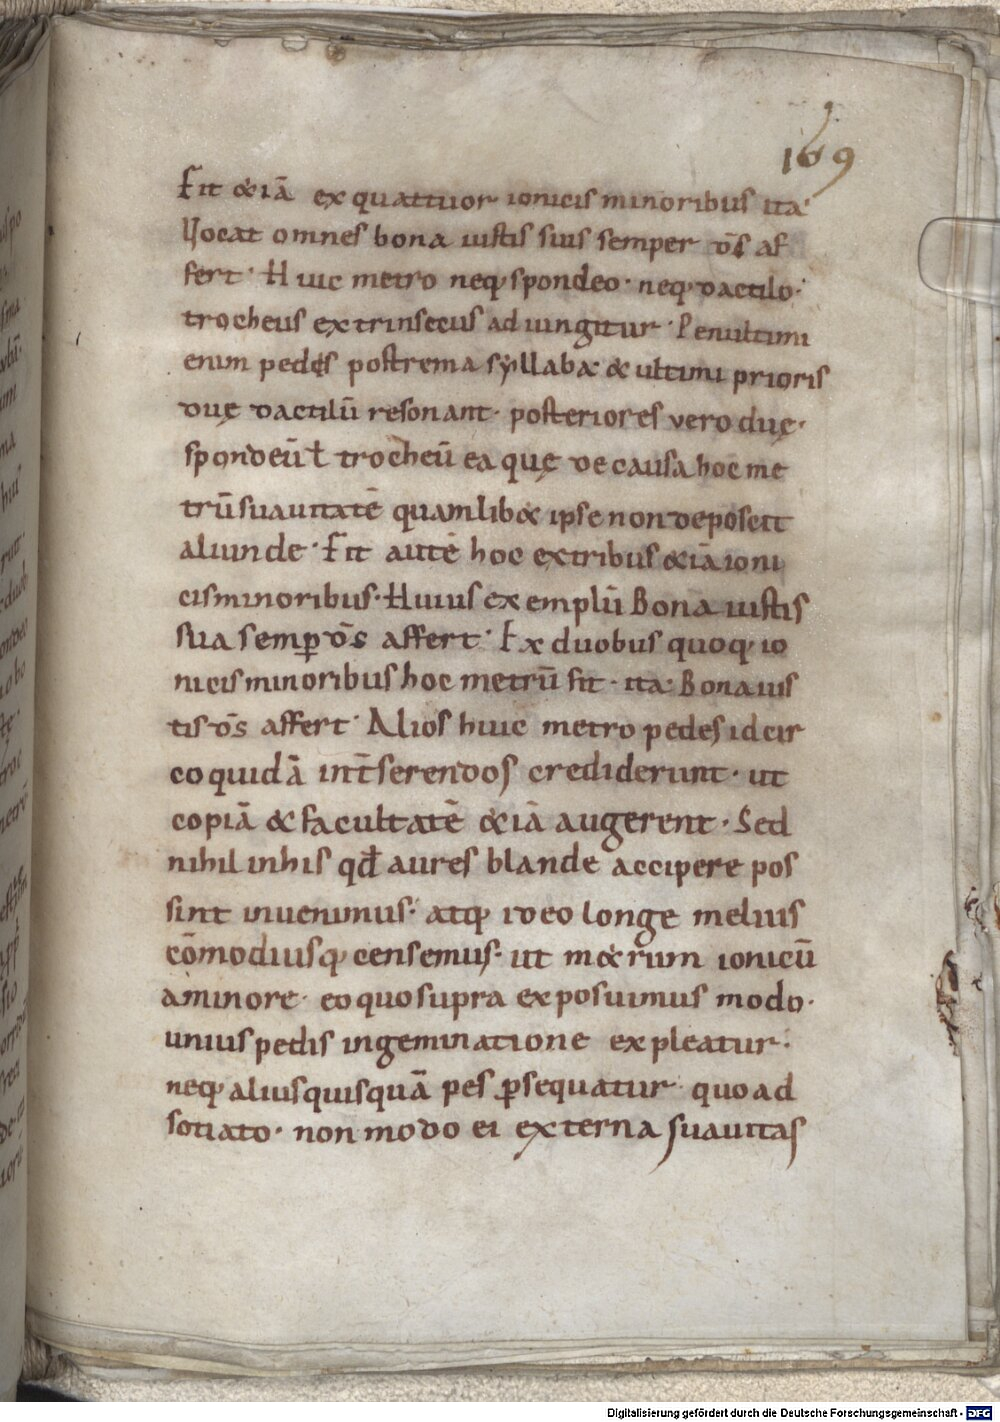 169
Fit &iā ex quattuor ionicis minoribus ita
Uocat omnes bona iustis suis semper ds̄ af
fert· Huic metro neq; spondeo· neq; dactilo·
trocheus extrinsecus adiungitur· Penultimi
enim pedes postrema syllaba & ultimi prioris
duę dactilū resonant· posteriores vero duę·
spondeū ł trocheū ea quę de causa hoc me
trū suauitatē quamlib& ipse non deposcit
aliunde· Fit autē hoc ex tribus &iā ioni
cis minoribus· Huius exemplū Bona iustis
sua semp̄ ds̄ affert· Ex duobus quoq; io
nicis minoribus hoc metrū fit· ita· Bona ius
tis ds̄ affert· Alios huic metro pedes idcir
co quidā int̄serendos crediderunt· ut
copiā & facultatē &iā augerent· Sed
nihil in his qđ aures blande accipere pos
sint inuenimus· atq; ideo longe melius
cōmodiusq; censemus· ut m&rum ionicū
a minore· eo quo supra exposuimus modo·
unius pedis ingeminatione expleatur·
neq; alius quisquā pes p̱sequatur· quo ad
sotiato· non modo ei externa suauitas
Digitalisierung gefördert durch die Deutsche Forschungsgemeinschaft - DFG